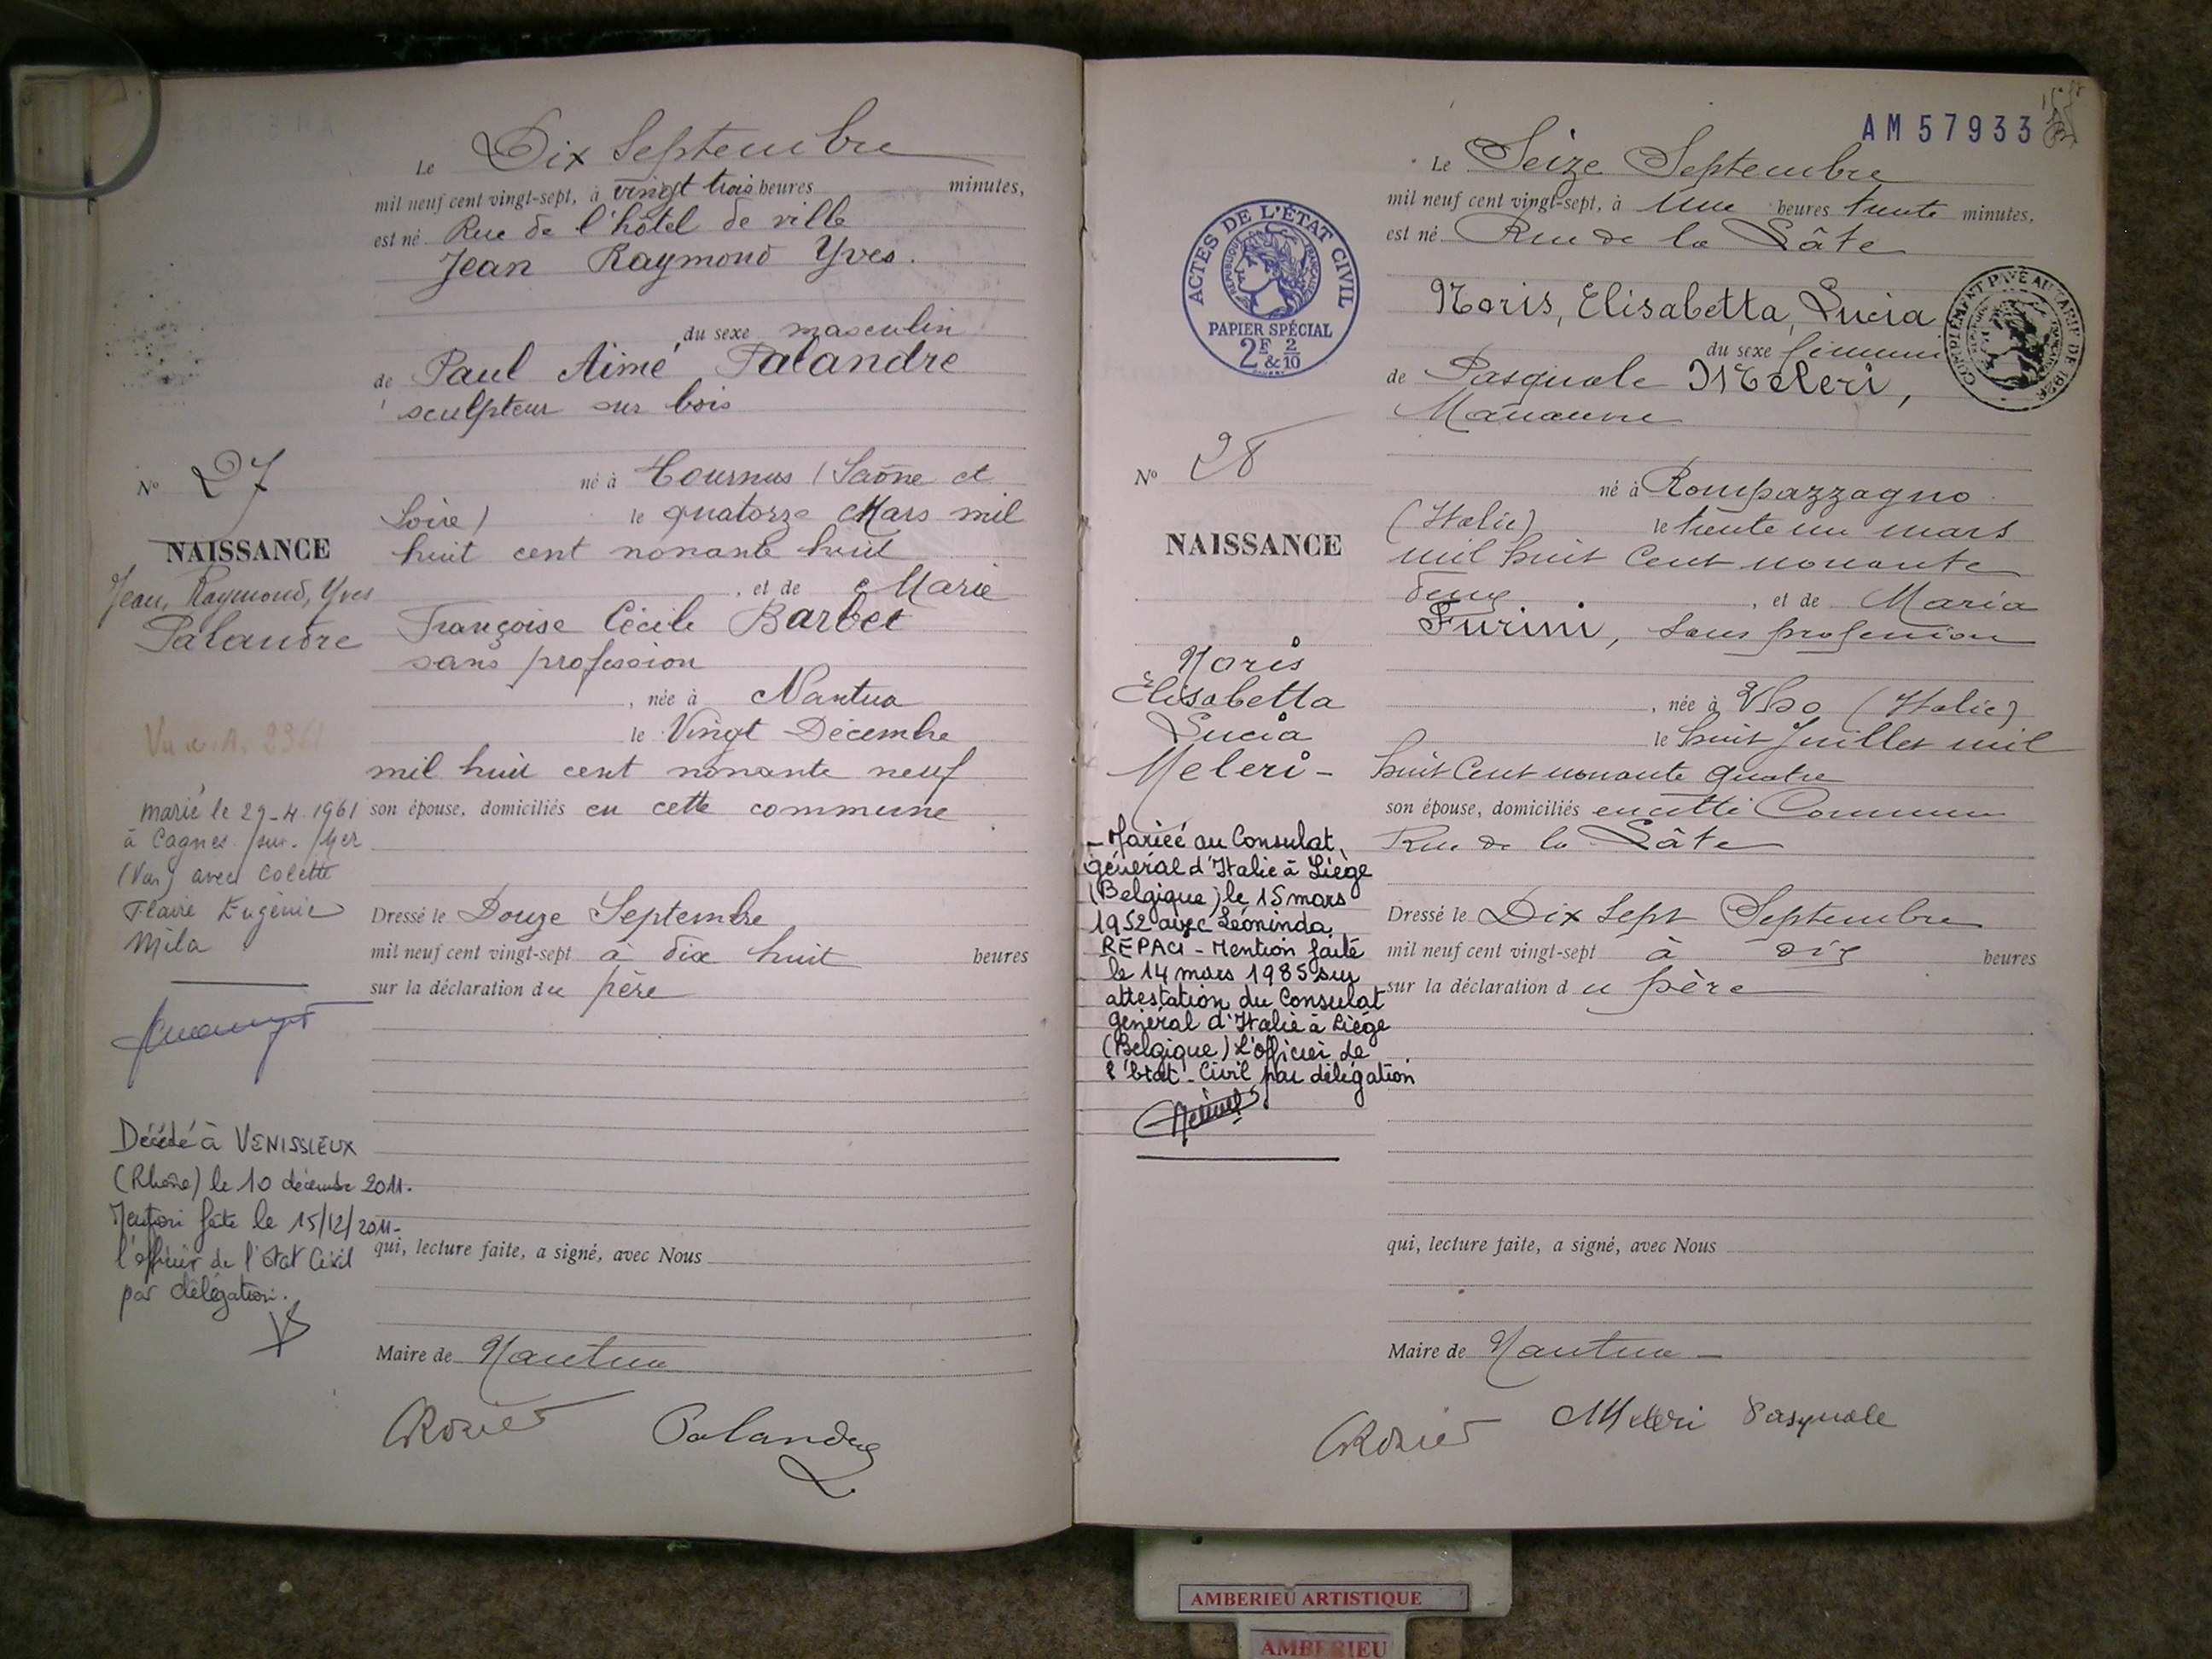 Le Dix Septembre
mil neuf cent vingt-sept, à vingt trois heures minutes,
est né Rue de l'hôtel de ville
Jean Raymond Yves.
du sexe masculin
de Paul Aimé Palandre
sculpteur sur bois
né à Tournus (Saône et
Loire) le quatorze Mars mil
huit cent nonante huit
, et de Marie
Françoise Cécile Barbet
sans profession
, née à Nantua
le Vingt Décembre
mil huit cent nonante neuf
son épouse, domiciliés en cette commune
Dressé le Douze Septembre
mil neuf cent vingt-sept à dix huit heures
sur la déclaration du père
qui, lecture faite, a signé, avec Nous
Maire de Nantua
CRozier Palandre
N° 27
NAISSANCE
Jean, Raymond, Yves
Palandre
marié le 29-4-1961
à Cagnes /sur. /Mer
(Var) avec Colette
Eugénie
Mila
Décédé à VENISSIEUX
(Rhône) le 10 décembre 2011.
Mention faite le 15/12/2011-
l'officier de l'Etat Civil
par délégation.
AM 57933
Le Seize Septembre
mil neuf cent vingt-sept, à Une heures trente minutes,
est né Rue de la
Noris, Elisabetta, Lucia
du sexe féminin
de Pasquale Meleri,
Manœuvre
né à Rompazzagno
(Italie) le trente un mars
mil huit Cent nonante
deux , et de Maria
Furini, sans profession
, née à Vho (Italie)
le huit Juillet mil
huit Cent nonante quatre
son épouse, domiciliés en cette Commune
Rue de la
Dressé le Dix Sept Septembre
mil neuf cent vingt-sept à dix heures
sur la déclaration du père
qui, lecture faite, a signé, avec Nous
Maire de Nantua -
CRozier Meleri Pasquale
ACTES DE L'ÉTAT CIVIL
RÉPUBLIQUE FRANÇAISE
PAPIER SPÉCIAL
2F & 2/10
COMPLÉMENT PAYÉ AU TARIF DE 1926
N° 28
NAISSANCE
Noris
Elisabetta
Lucia
Meleri -
- Mariée au Consulat
général d'Italie à Liège
(Belgique) le 15 mars
1952 avec Léoninda
REPACI - Mention faite
le 14 mars 1985 sur
attestation du Consulat
général d'Italie à Liège
(Belgique) L'officier de
l'Etat-Civil par délégation
AMBERIEU ARTISTIQUE
AMBERIEU